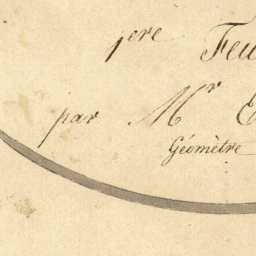 1ere Feu
par Mr E
Géomètre